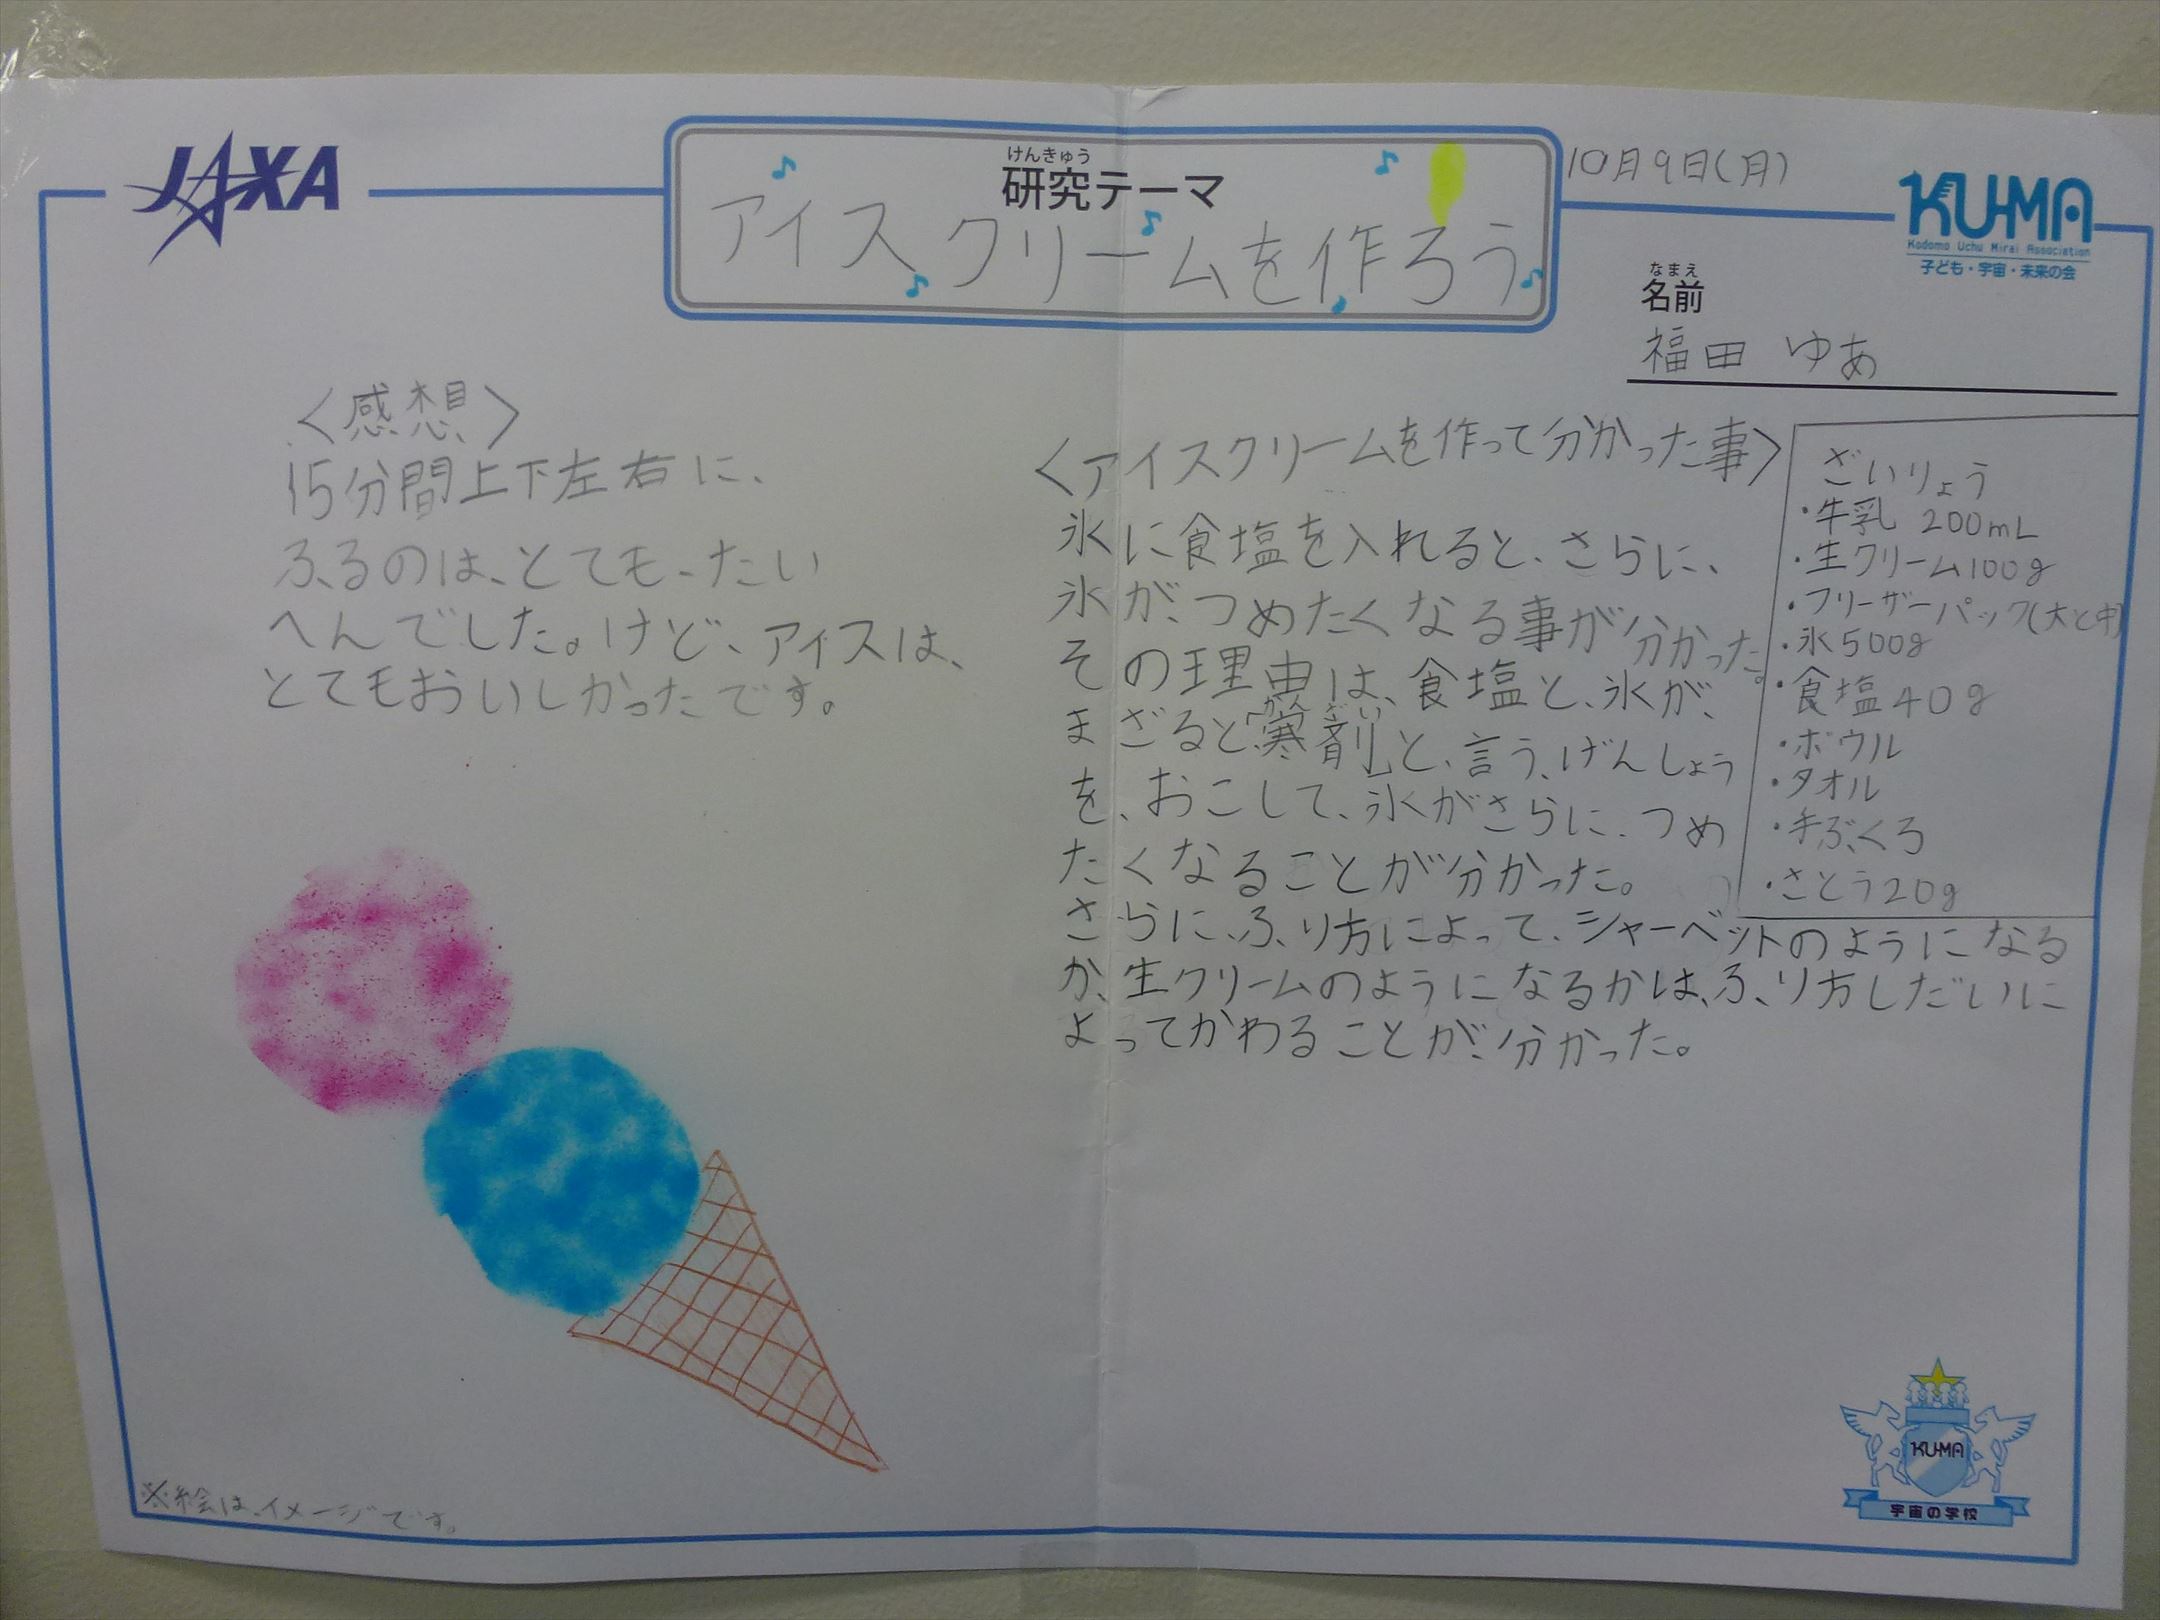 JAXA
けんきゅう
研究テーマ
アイスクリームを作ろう
10月9日(月)
KU-MA
Kodomo Uchu Mirai Association
子ども・宇宙・未来の会
なまえ
名前
福田 ゆあ
〈感想〉
15分間上下左右に、
ふるのは、とても、たい
へんでした。けど、アイスは、
とてもおういしかったです。
〈アイスクリームを作って分かった事〉
氷に食塩を入れると、さらに、
氷が、つめたくなる事が分かった。
その理由は、食塩と、氷が、
まざると、「寒剤」と、言う、げんしょう
かんざい
を、おこして、氷がさらに、つめ
たくなることが分かった。
さらに、ふり方によって、シャーベットのようになる
か、生クリームのようになるかは、ふり方しだいに
よってかわることが、分かった。
ざいりょう
・牛乳 200mL
・生クリーム100g
・フリーザーパック(大と中)
・氷500g
・食塩40g
・ボウル
・タオル
・手ぶくろ
・さとう20g
※絵は、イメージです。
KU-MA
宇宙の学校